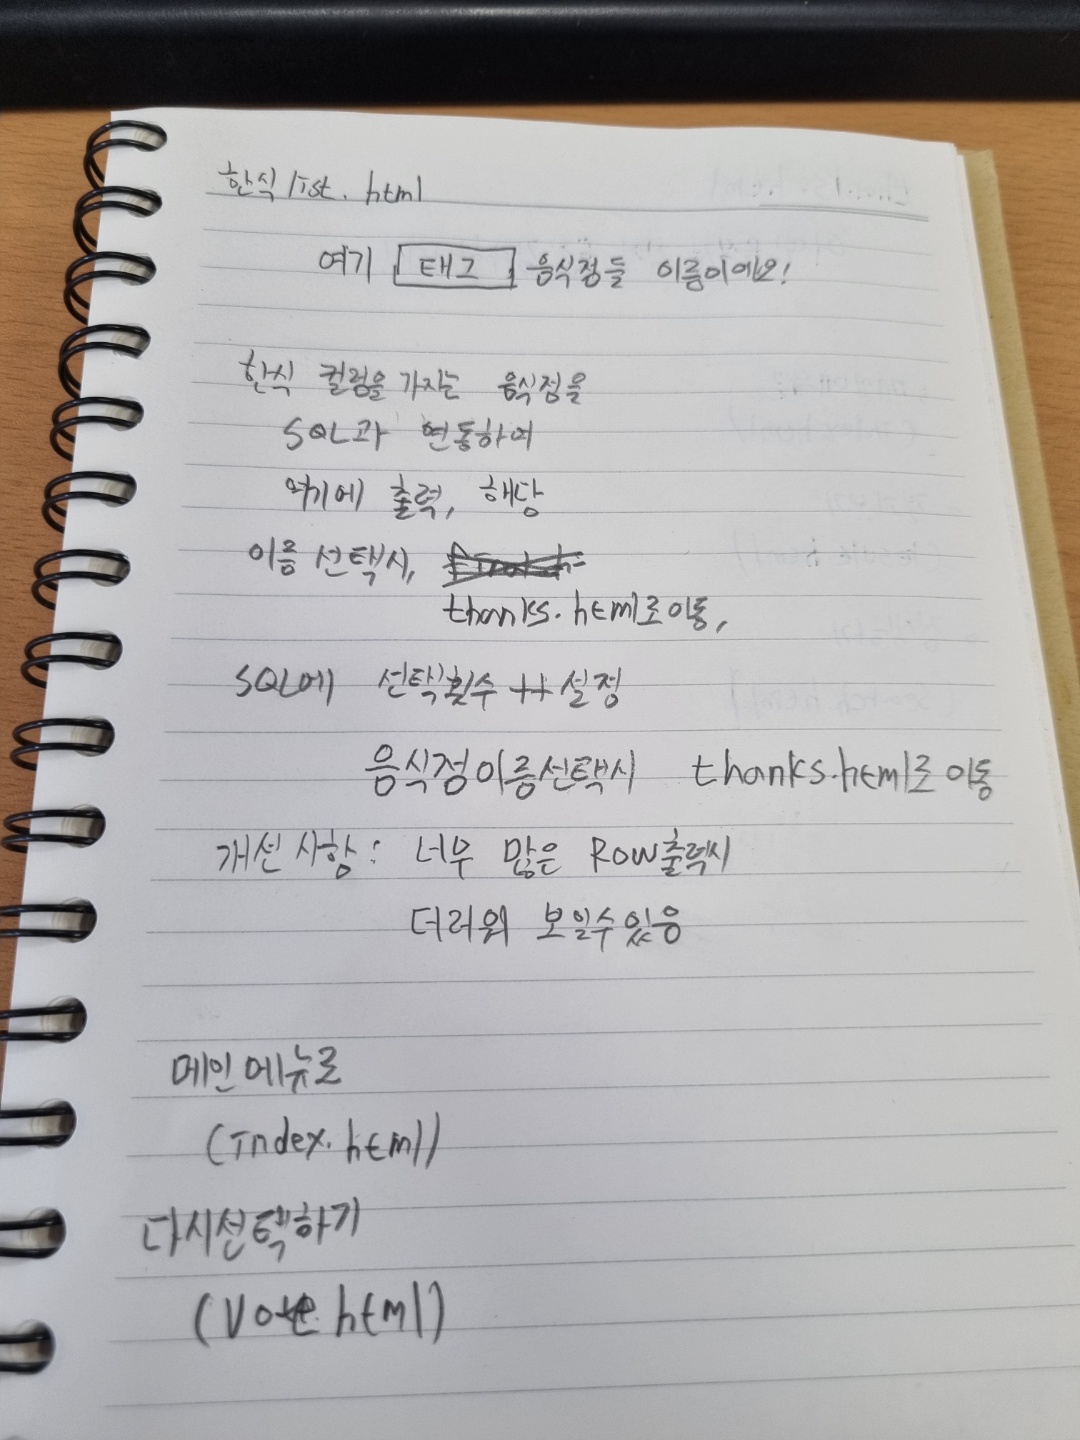 한식list.html
여기 태그 음식점들 이름이에요!
한식 컬럼을 가지는 음식점을
SQL과 연동하여
여기에 출력, 해당
이름 선택시,
thanks.html로 이동,
SQL에 선택횟수 ++ 설정
음식점이름선택시 thanks.html로 이동
개선 사항: 너무 많은 Row출력시
더러워 보일수있음
메인메뉴로
(index.html)
다시선택하기
(Vote.html)